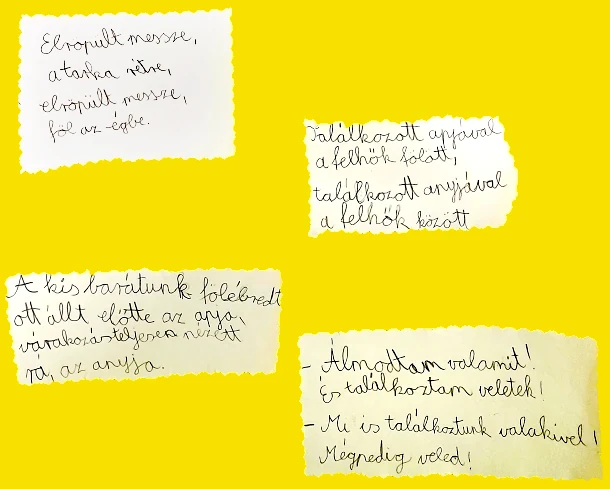 Elröpült messze,
a tarka rétre,
elröpült messze,
föl az égbe.
Találkozott apjával
a felhők fölött,
találkozott anyjával
a felhők között
A kis barátunk fölébredt
ott állt előtte az apja,
várakozásteljesen nézett
rá, az anyja.
- Álmodtam valamit!
És találkoztam veletek!
- Mi is találkoztunk valakivel!
Mégpedig veled!